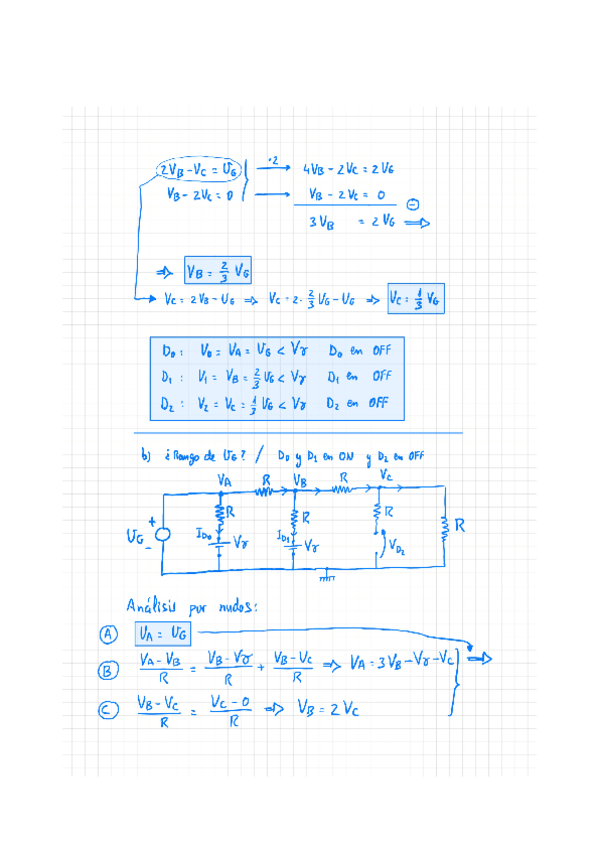 2V_B - V_C = V_G } ·2 → 4V_B - 2V_C = 2V_G
V_B - 2V_C = 0 → V_B - 2V_C = 0 ⊖
3V_B = 2V_G ⇒
⇒ V_B = 2/3 V_G
V_C = 2V_B - V_G ⇒ V_C = 2 · 2/3 V_G - V_G ⇒ V_C = 1/3 V_G
D_0 : V_0 = V_A = V_G < Vγ D_0 en OFF
D_1 : V_1 = V_B = 2/3 V_G < Vγ D_1 en OFF
D_2 : V_2 = V_C = 1/3 V_G < Vγ D_2 en OFF
b) ¿Rango de V_G? / D_0 y D_1 en ON y D_2 en OFF
V_A R V_B R V_C
R R R R
+ V_G - I_D0 Vγ I_D1 Vγ V_D2
Análisis por nudos:
Ⓐ V_A = V_G
Ⓑ (V_A - V_B)/R = (V_B - Vγ)/R + (V_B - V_C)/R ⇒ V_A = 3V_B - Vγ - V_C } ⇒
Ⓒ (V_B - V_C)/R = (V_C - 0)/R ⇒ V_B = 2V_C